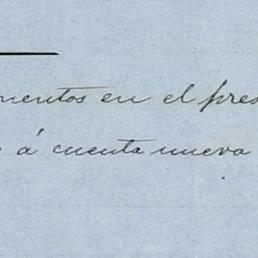 mentos en el pres
á cuenta nueva